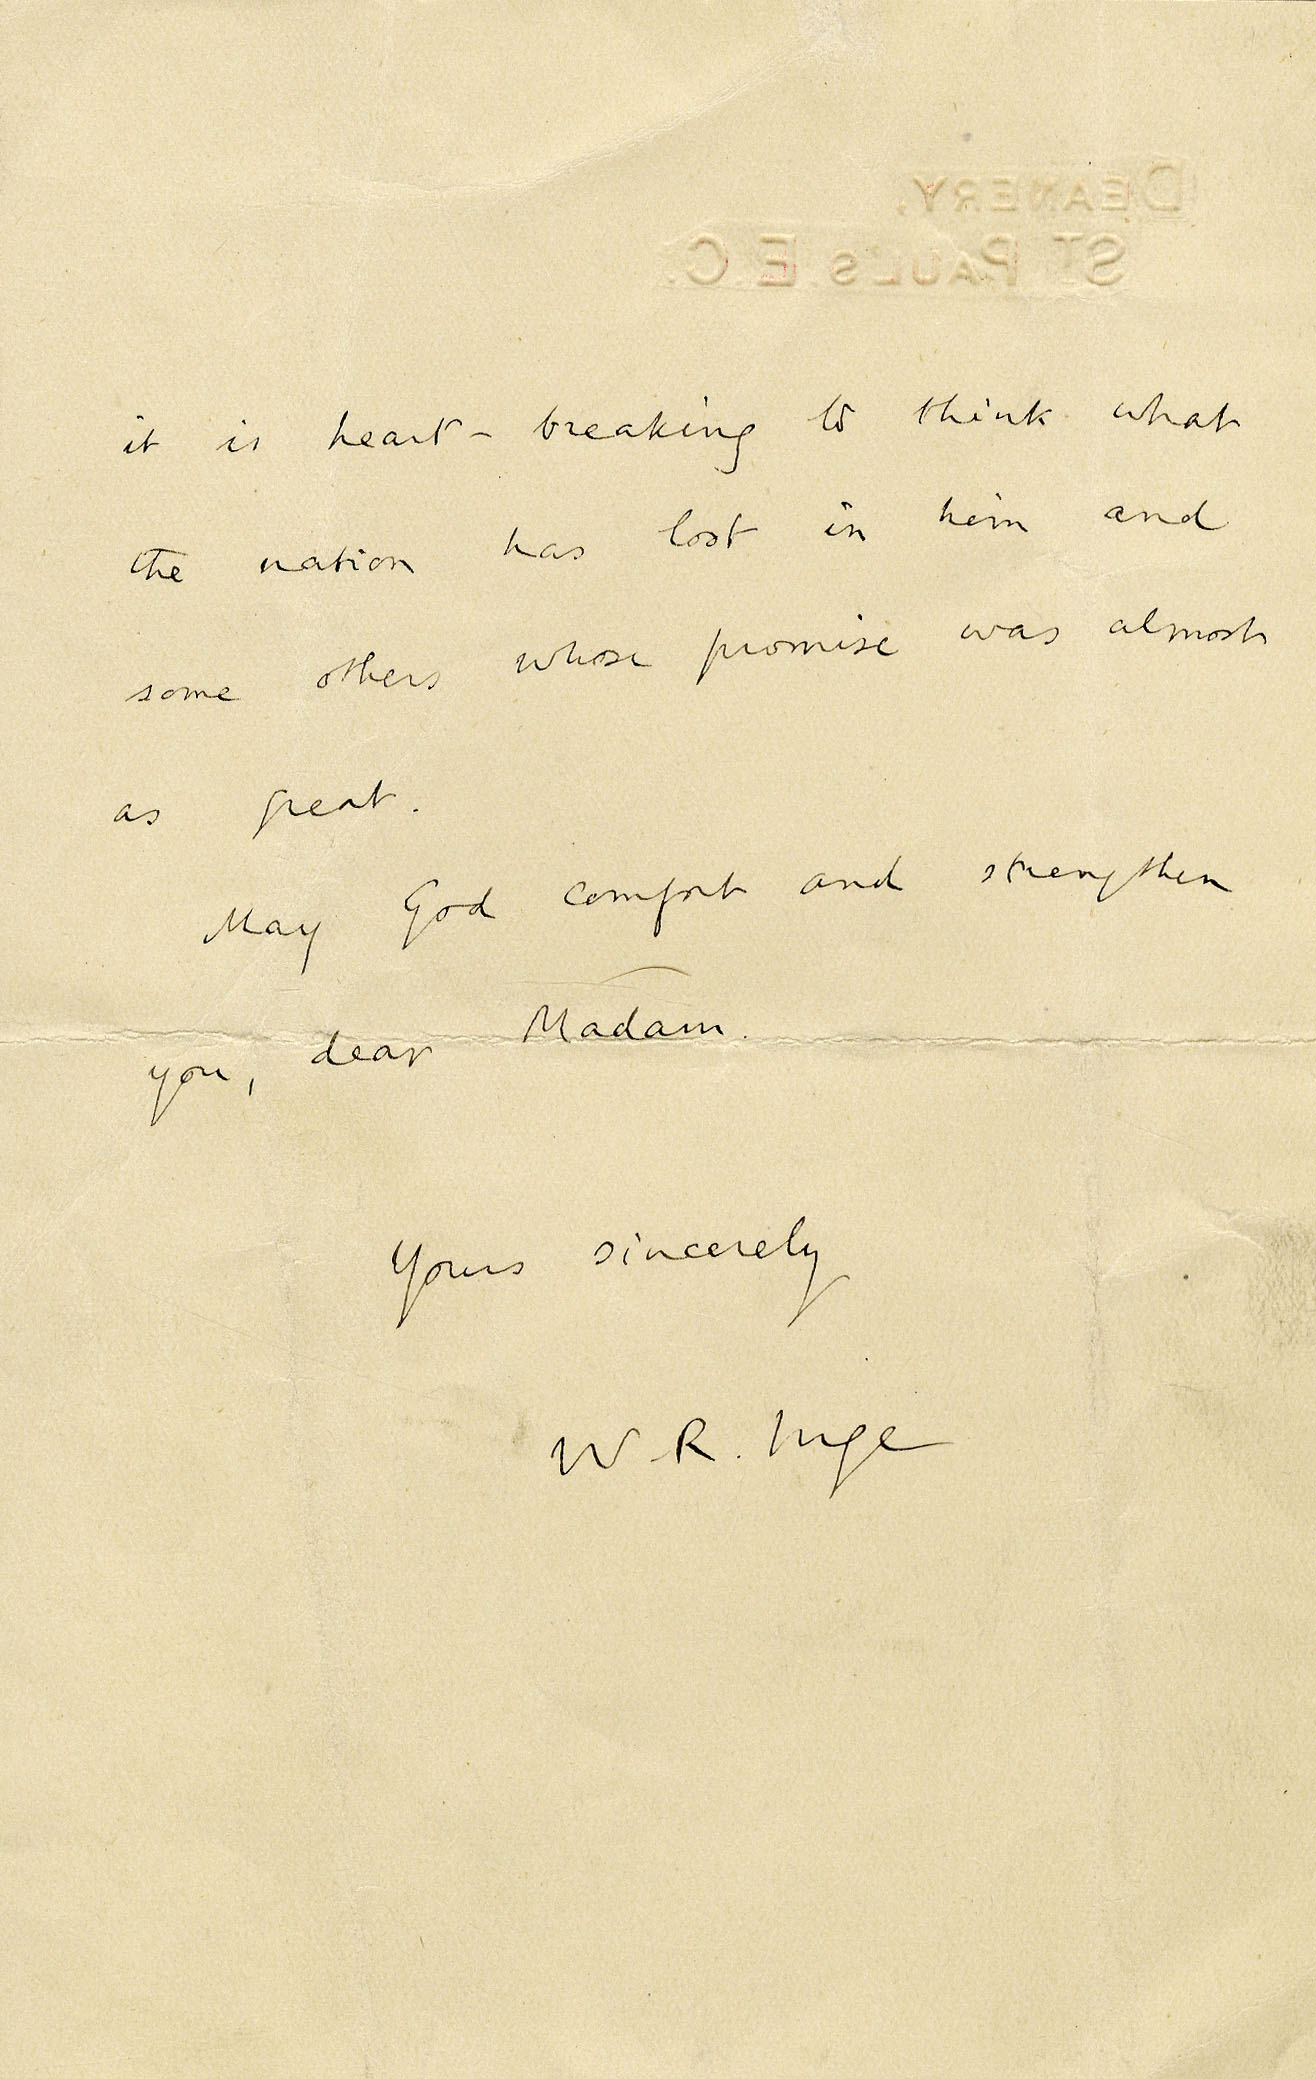 DEANERY,
ST PAUL'S. E.C.
it is heart-breaking to think what
the nation has lost in him and
some others whose promise was almost
as great.
May God comfort and strengthen
you, dear Madam.
Yours sincerely
W. R. Inge